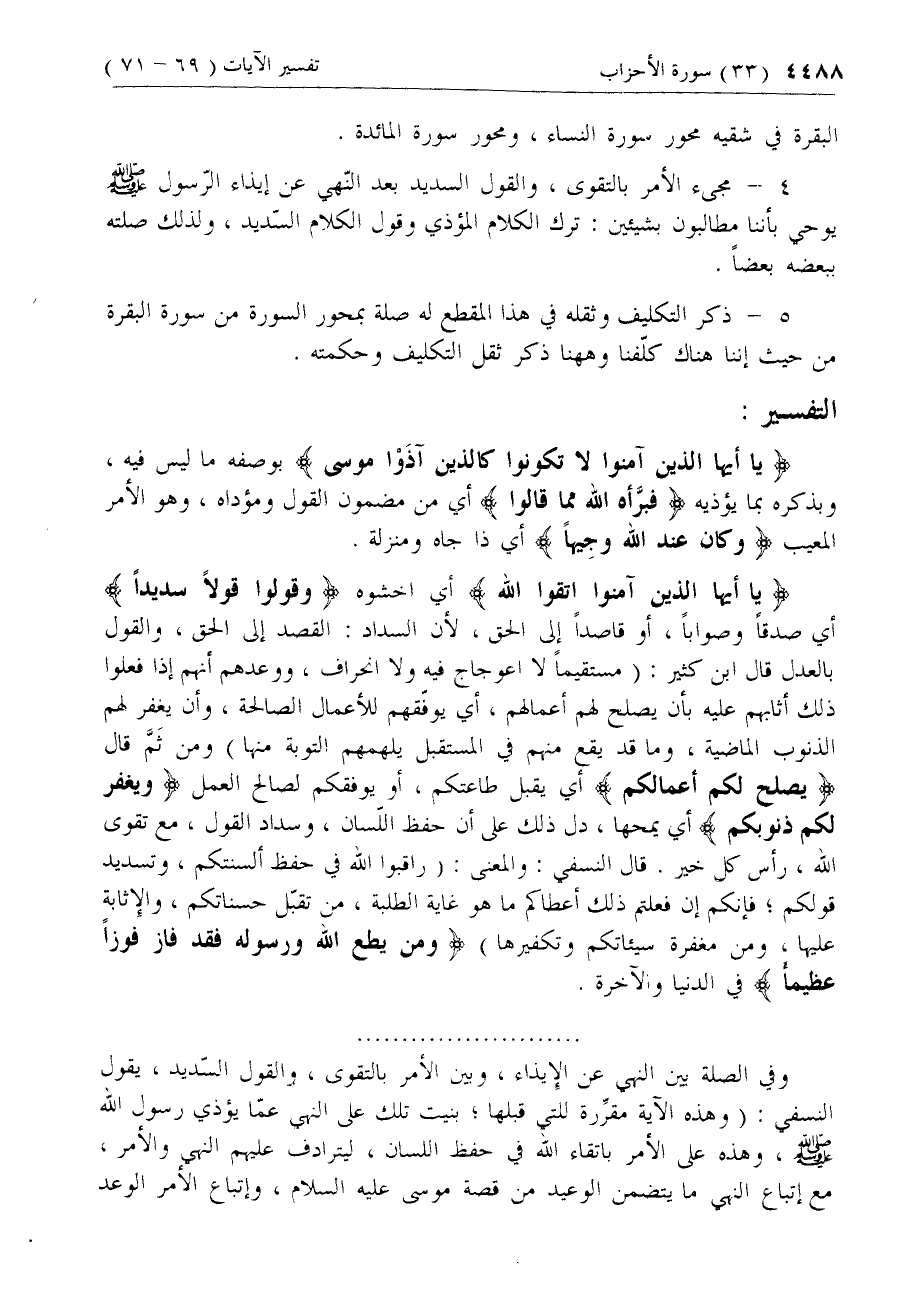 ٤٤٨٨ (٣٣) سورة الأحزاب تفسير الآيات (٦٩ - ٧١)
البقرة في شقيه محور سورة النساء ، ومحور سورة المائدة .
٤ - مجىء الأمر بالتقوى ، والقول السديد بعد النّهي عن إيذاء الرّسول ﷺ
يوحي بأننا مطالبون بشيئين : ترك الكلام المؤذي وقول الكلام السّديد ، ولذلك صلته
ببعضه بعضاً .
٥ - ذكر التكليف وثقله في هذا المقطع له صلة بمحور السورة من سورة البقرة
من حيث إننا هناك كلّفنا وههنا ذكر ثقل التكليف وحكمته .
التفسير :
﴿ يا أيها الذين آمنوا لا تكونوا كالذين آذَوْا موسى ﴾ بوصفه ما ليس فيه ،
وبذكره بما يؤذيه ﴿ فبرَّأه الله مما قالوا ﴾ أي من مضمون القول ومؤداه ، وهو الأمر
المعيب ﴿ وكان عند الله وجيهاً ﴾ أي ذا جاه ومنزلة .
﴿ يا أيها الذين آمنوا اتقوا الله ﴾ أي اخشوه ﴿ وقولوا قولاً سديداً ﴾
أي صدقاً وصواباً ، أو قاصداً إلى الحق ، لأن السداد : القصد إلى الحق ، والقول
بالعدل قال ابن كثير : ( مستقيماً لا اعوجاج فيه ولا انحراف ، ووعدهم أنهم إذا فعلوا
ذلك أثابهم عليه بأن يصلح لهم أعمالهم ، أي يوفّقهم للأعمال الصالحة ، وأن يغفر لهم
الذنوب الماضية ، وما قد يقع منهم في المستقبل يلهمهم التوبة منها ) ومن ثَمَّ قال
﴿ يصلح لكم أعمالكم ﴾ أي يقبل طاعتكم ، أو يوفقكم لصالح العمل ﴿ ويغفر
لكم ذنوبكم ﴾ أي يمحها ، دل ذلك على أن حفظ اللّسان ، وسداد القول ، مع تقوى
الله ، رأس كل خير . قال النسفي : والمعنى : ( راقبوا الله في حفظ ألسنتكم ، وتسديد
قولكم ؛ فإنكم إن فعلتم ذلك أعطاكم ما هو غاية الطلبة ، من تقبّل حسناتكم ، والإثابة
عليها ، ومن مغفرة سيئاتكم وتكفيرها ) ﴿ ومن يطع الله ورسوله فقد فاز فوزاً
عظيماً ﴾ في الدنيا والآخرة .
.........................
وفي الصلة بين النهي عن الإيذاء ، وبين الأمر بالتقوى ، والقول السّديد ، يقول
النسفي : ( وهذه الآية مقرِّرة للتي قبلها ؛ بنيت تلك على النهي عمّا يؤذي رسول الله
ﷺ ، وهذه على الأمر باتقاء الله في حفظ اللسان ، ليترادف عليهم النهي والأمر ،
مع إتباع النهي ما يتضمن الوعيد من قصة موسى عليه السلام ، وإتباع الأمر الوعد